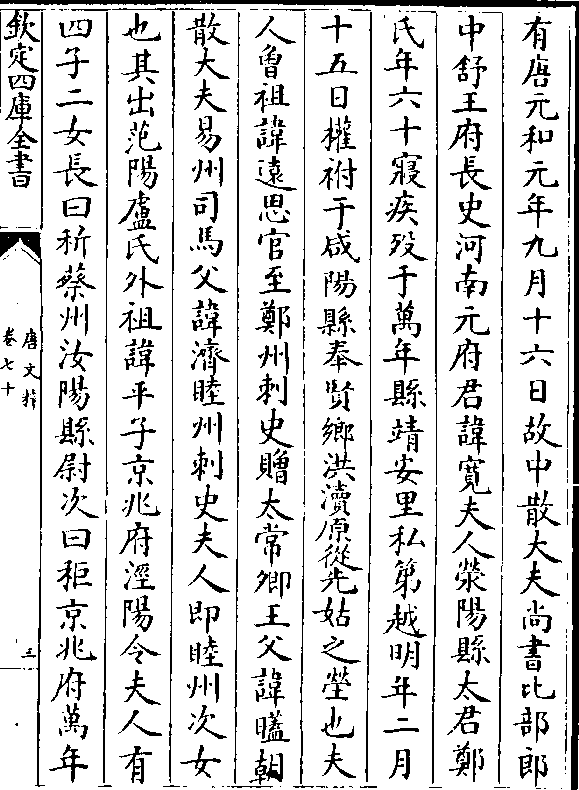 有唐元和元年九月十六日故中散大夫尚書比部郎
中舒王府長史河南元府君諱寛夫人滎陽縣太君鄭
氏年六十寢疾殁于萬年縣靖安里私第越明年二月
十五日權祔于咸陽縣奉賢鄉洪瀆原從先姑之塋也夫
人曾祖諱逺思官至鄭州刺史贈太常卿王父諱㬭朝
散大夫易州司馬父諱濟睦州刺史夫人即睦州次女
也其出范陽盧氏外祖諱平子京兆府涇陽令夫人有
四子二女長曰秙蔡州汝陽縣尉次曰秬京兆府萬年
欽定四庫全書
唐文粹
卷七十
三